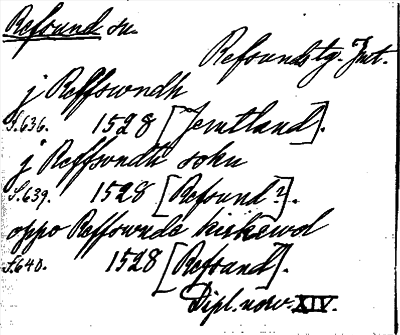 Refsund sn.
Refsunds tg. Jmt.
j Reffswndh
S.636. 1528 [Jemtland].
j Reffswndh sokn
S.639. 1528 [Refsund?].
oppo Reffswnda kirkewol
S.640. 1528 [Refsund].
Dipl. norv. XIV.